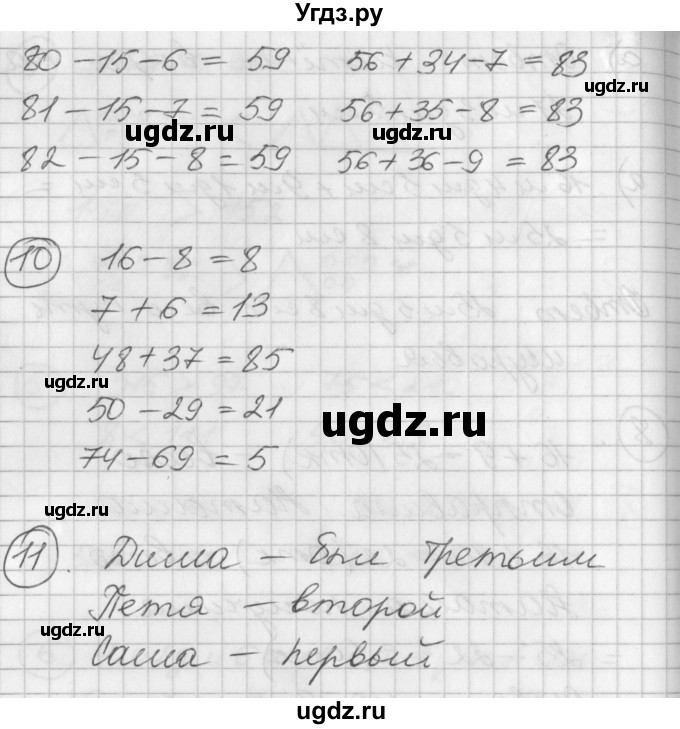 Угдз.ру
80 - 15 - 6 = 59 56 + 34 - 7 = 83
ugdz.ru
81 - 15 - 7 = 59 56 + 35 - 8 = 83
ugdz.ru ugdz.ru
82 - 15 - 8 = 59 56 + 36 - 9 = 83
10 16 - 8 = 8
7 + 6 = 13
48 + 37 = 85
ugdz.ru
50 - 29 = 21
ugdz.ru
74 - 69 = 5
ugdz.ru
11. Дима - был третьим
Петя - второй
Саша - первый
ugdz.ru